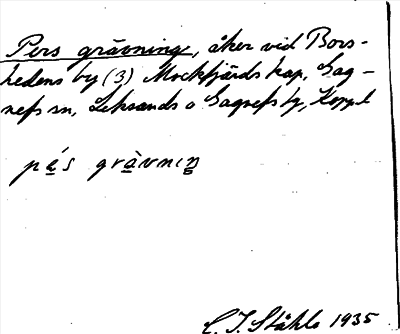 Pers grävning, åker vid Bors-
hedens by (3) Mockfjärds kap, Gag-
nefs sn, Leksands o Gagnefs tg, Koppl
pás gràvnıŋ
C. I. Ståhle 1935